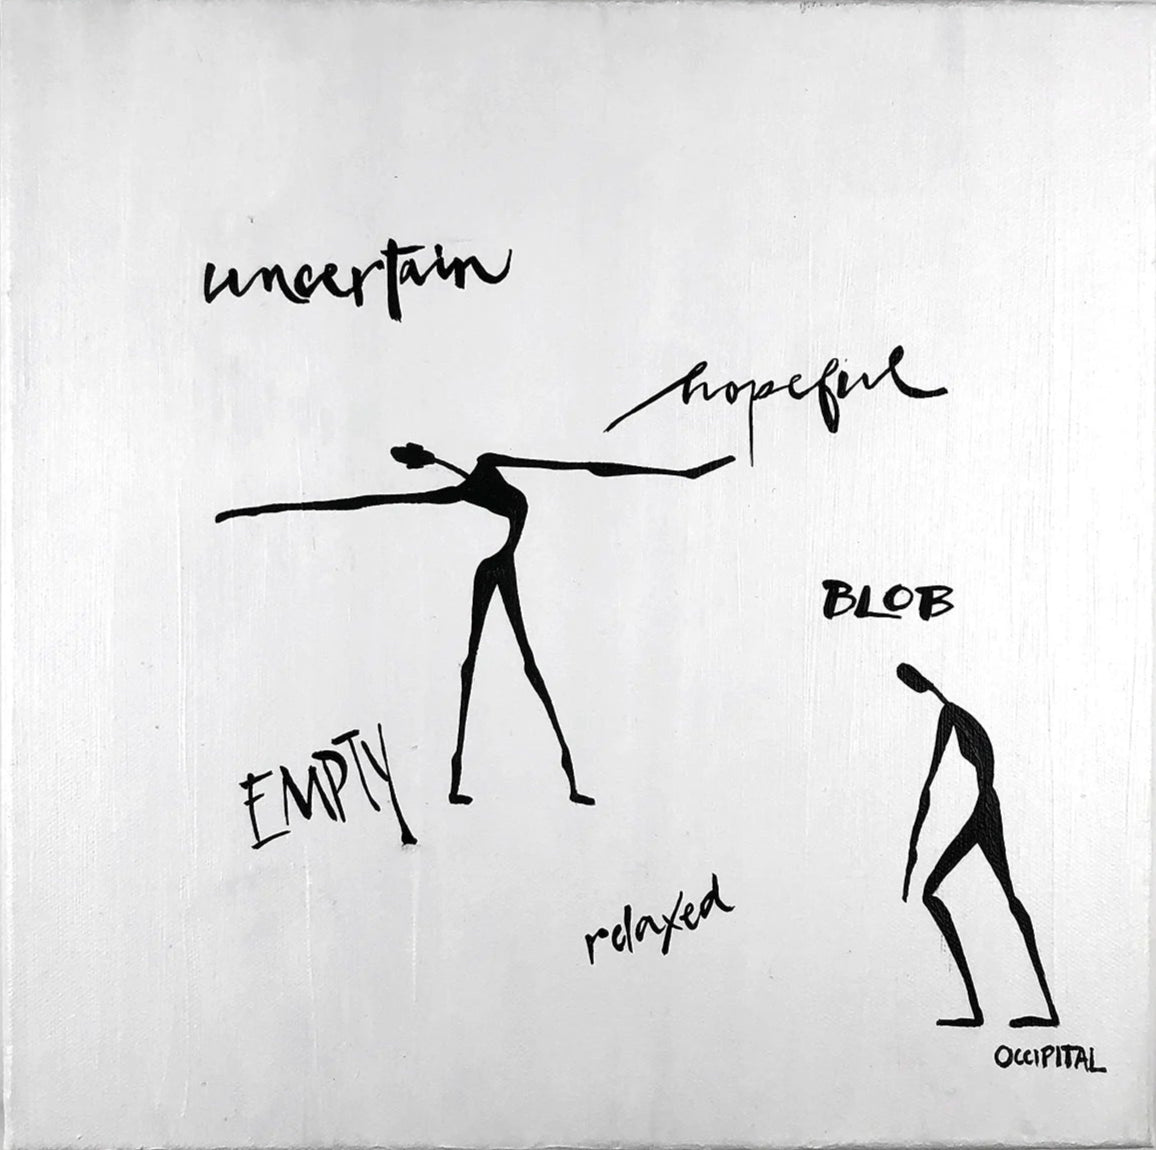 uncertain
hopeful
BLOB
EMPTY
relaxed
OCCIPITAL